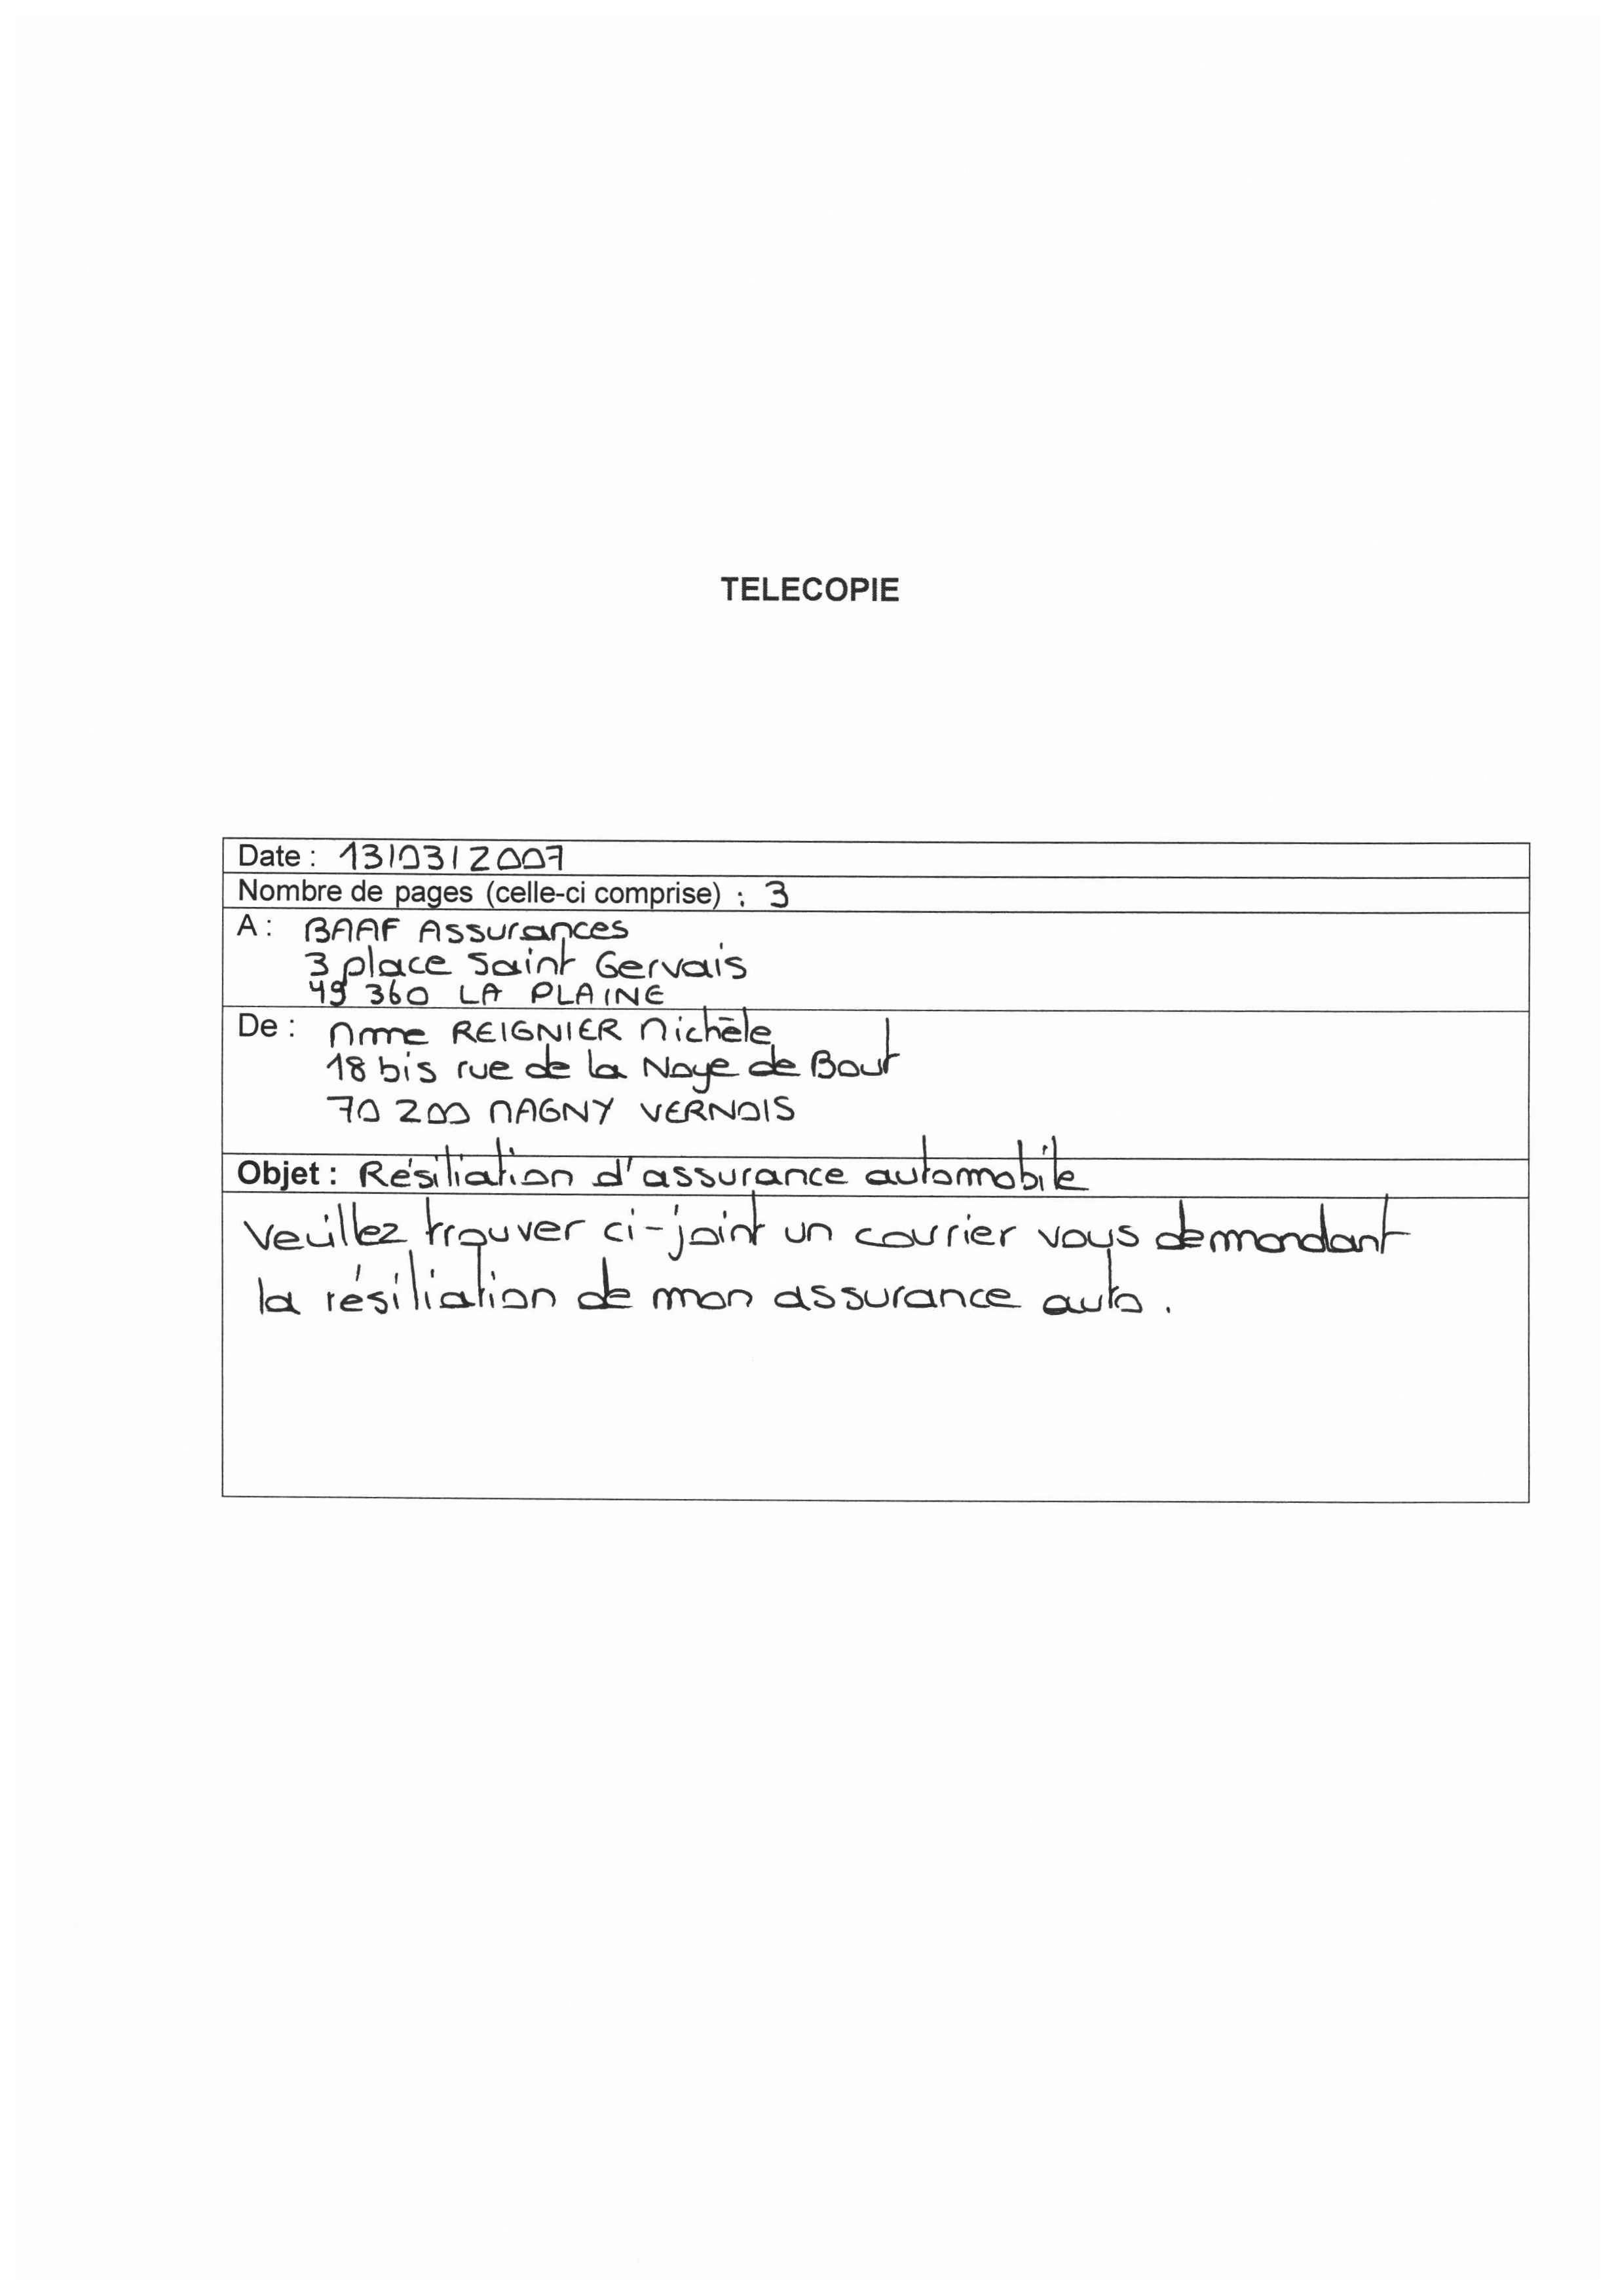 TELECOPIE
Date : 13/03/2007
Nombre de pages (celle-ci comprise) : 3
A : BAAF Assurances
3 place Saint Gervais
49 360 LA PLAINE
De : Mme REIGNIER Michèle
18 bis rue de la Noye de Bout
70 200 MAGNY VERNOIS
Objet : Résiliation d'assurance automobile
Veuillez trouver ci-joint un courrier vous demandant
la résiliation de mon assurance auto.